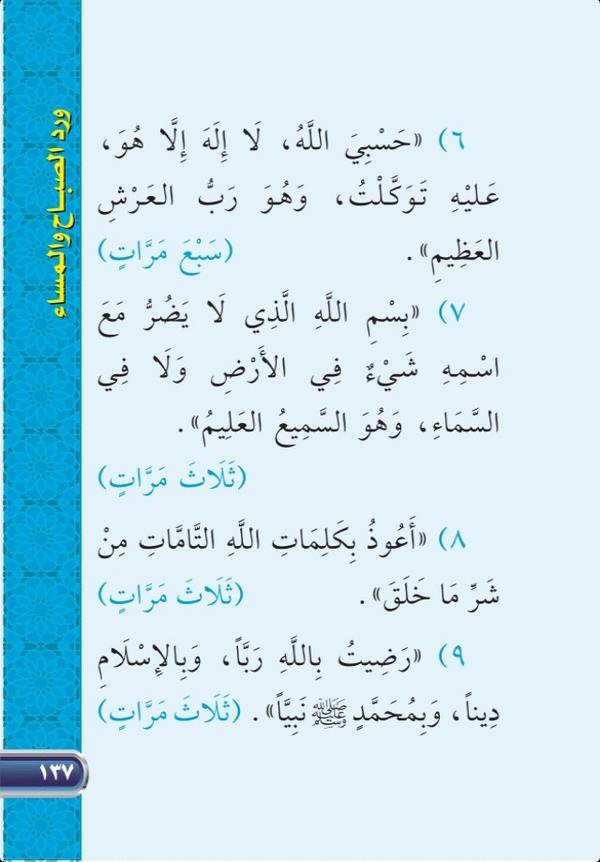 ورد الصباح والمساء
٦) «حَسْبِيَ اللَّهُ، لَا إِلَهَ إِلَّا هُوَ،
عَلَيْهِ تَوَكَّلْتُ، وَهُوَ رَبُّ العَرْشِ
العَظِيمِ». (سَبْعَ مَرَّاتٍ)
٧) «بِسْمِ اللَّهِ الَّذِي لَا يَضُرُّ مَعَ
اسْمِهِ شَيْءٌ فِي الأَرْضِ وَلَا فِي
السَّمَاءِ، وَهُوَ السَّمِيعُ العَلِيمُ».
(ثَلَاثَ مَرَّاتٍ)
٨) «أَعُوذُ بِكَلِمَاتِ اللَّهِ التَّامَّاتِ مِنْ
شَرِّ مَا خَلَقَ». (ثَلَاثَ مَرَّاتٍ)
٩) «رَضِيتُ بِاللَّهِ رَبَّاً، وَبِالإِسْلَامِ
دِيناً، وَبِمُحَمَّدٍ ﷺ نَبِيَّاً». (ثَلَاثَ مَرَّاتٍ)
١٣٧